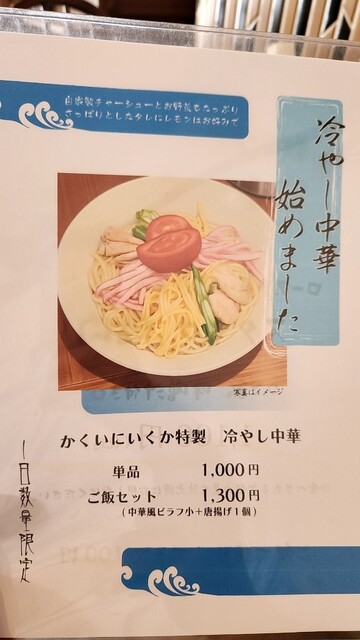 自家製チャーシューとお野菜もたっぷり
さっぱりとしたタレにレモンはお好みで
冷やし中華
始めました
写真はイメージ
かくいにいくか特製 冷やし中華
単品 1,000円
ご飯セット 1,300円
(中華風ピラフ小+唐揚げ1個)
一日数量限定